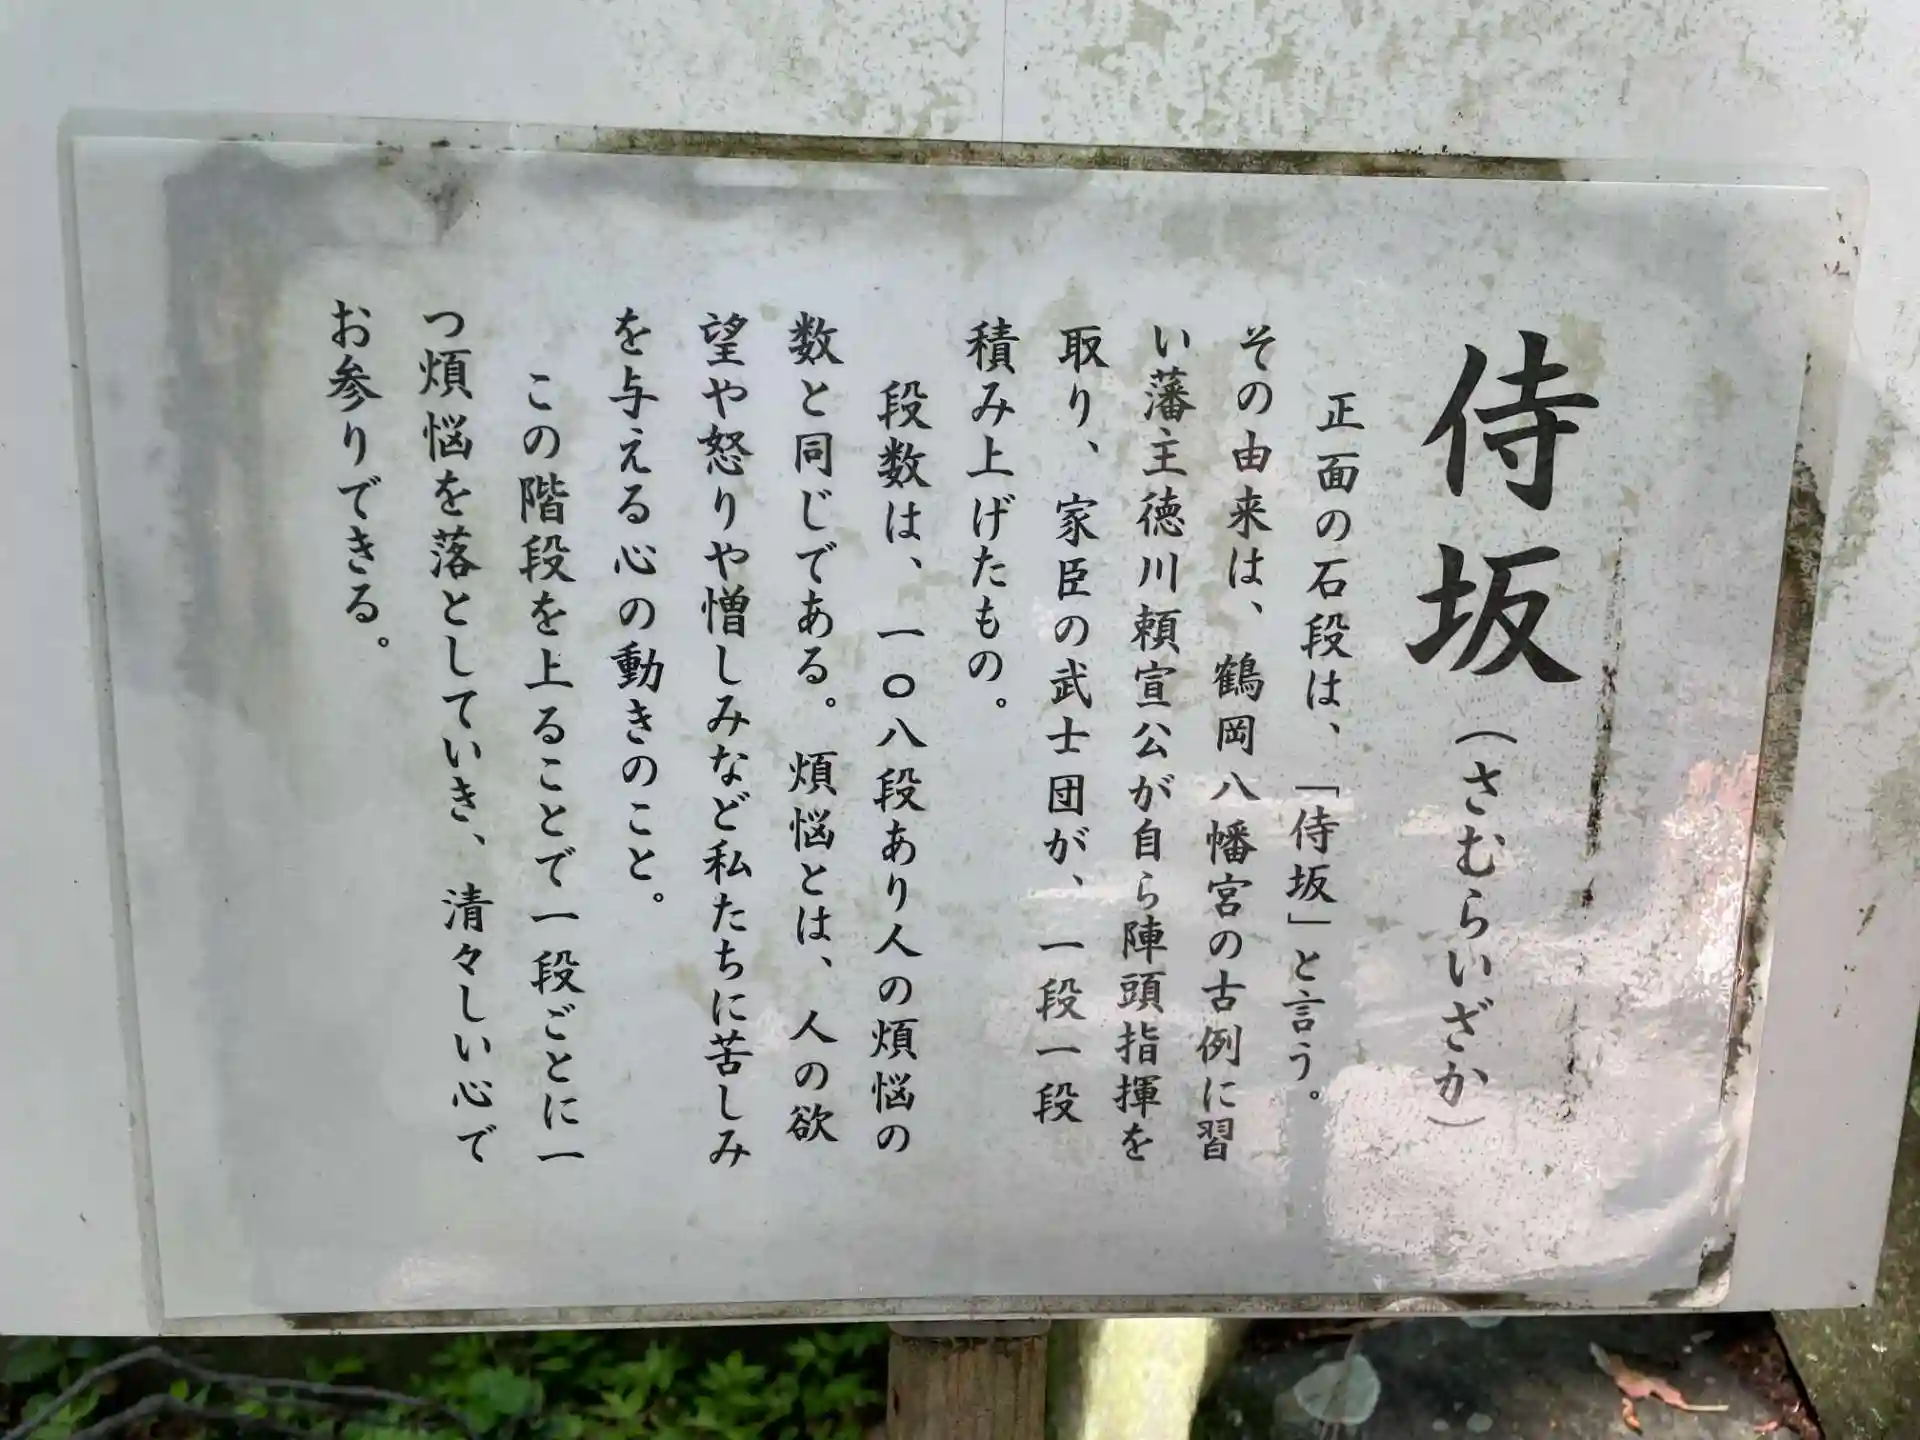 侍坂（さむらいざか）
正面の石段は、「侍坂」と言う。
その由来は、鶴岡八幡宮の古例に習
い藩主徳川頼宣公が自ら陣頭指揮を
取り、家臣の武士団が、一段一段
積み上げたもの。
段数は、一〇八段あり人の煩悩の
数と同じである。煩悩とは、人の欲
望や怒りや憎しみなど私たちに苦しみ
を与える心の動きのこと。
この階段を上ることで一段ごとに一
つ煩悩を落としていき、清々しい心で
お参りできる。